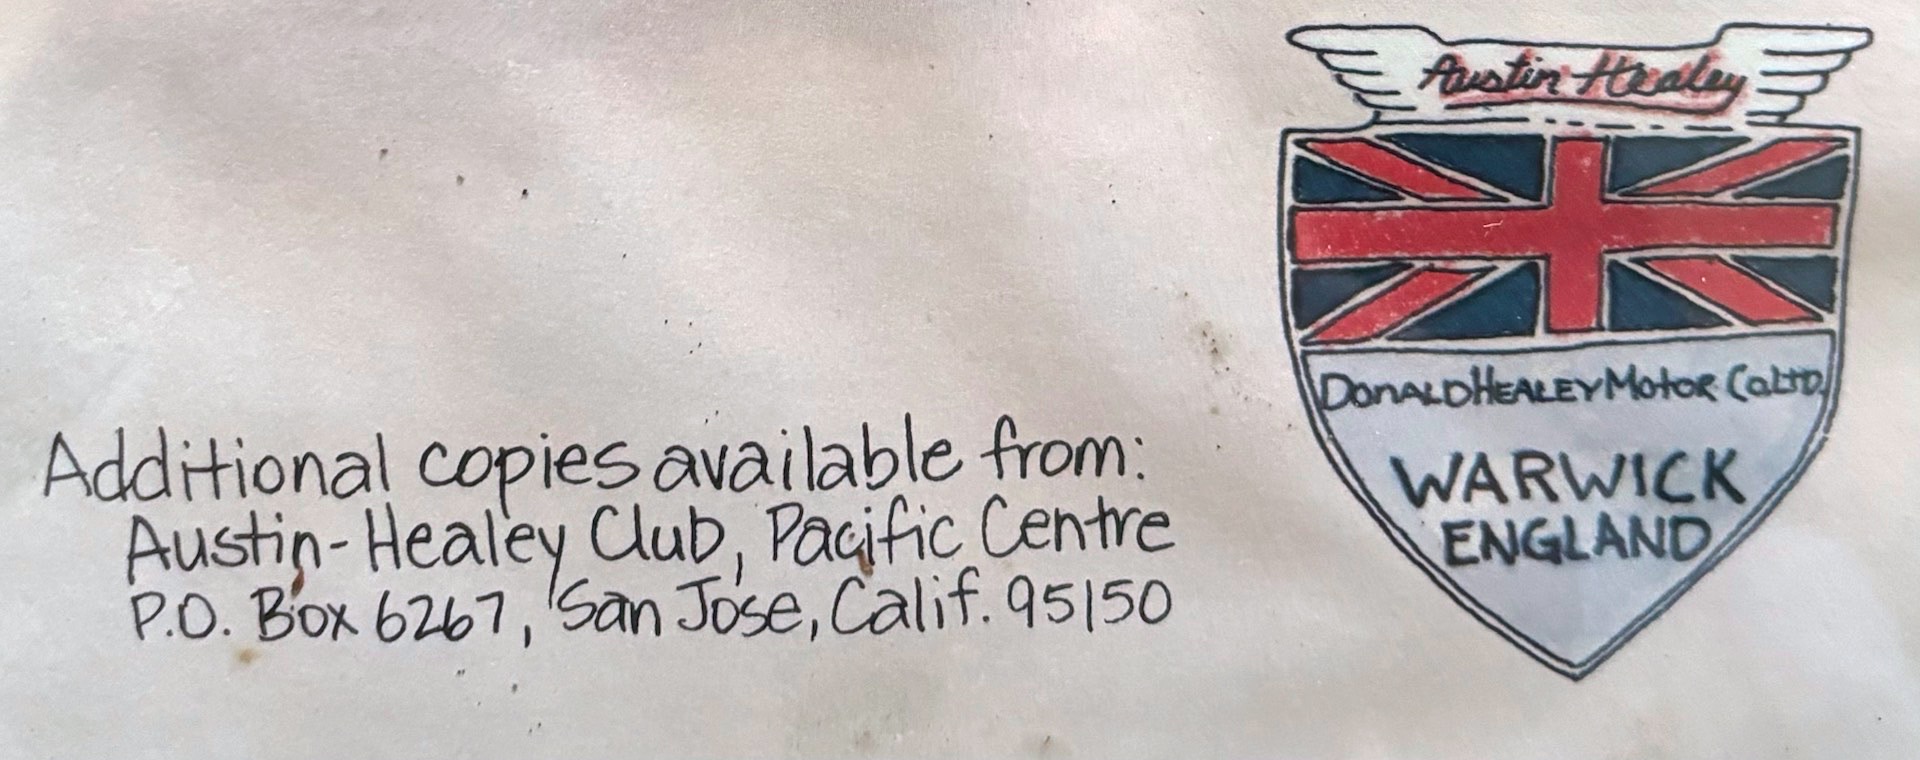 Austin Healey
DONALD HEALEY MOTOR Co LTD.
WARWICK
ENGLAND
Additional copies available from:
Austin-Healey Club, Pacific Centre
P.O. Box 6267, San Jose, Calif. 95150